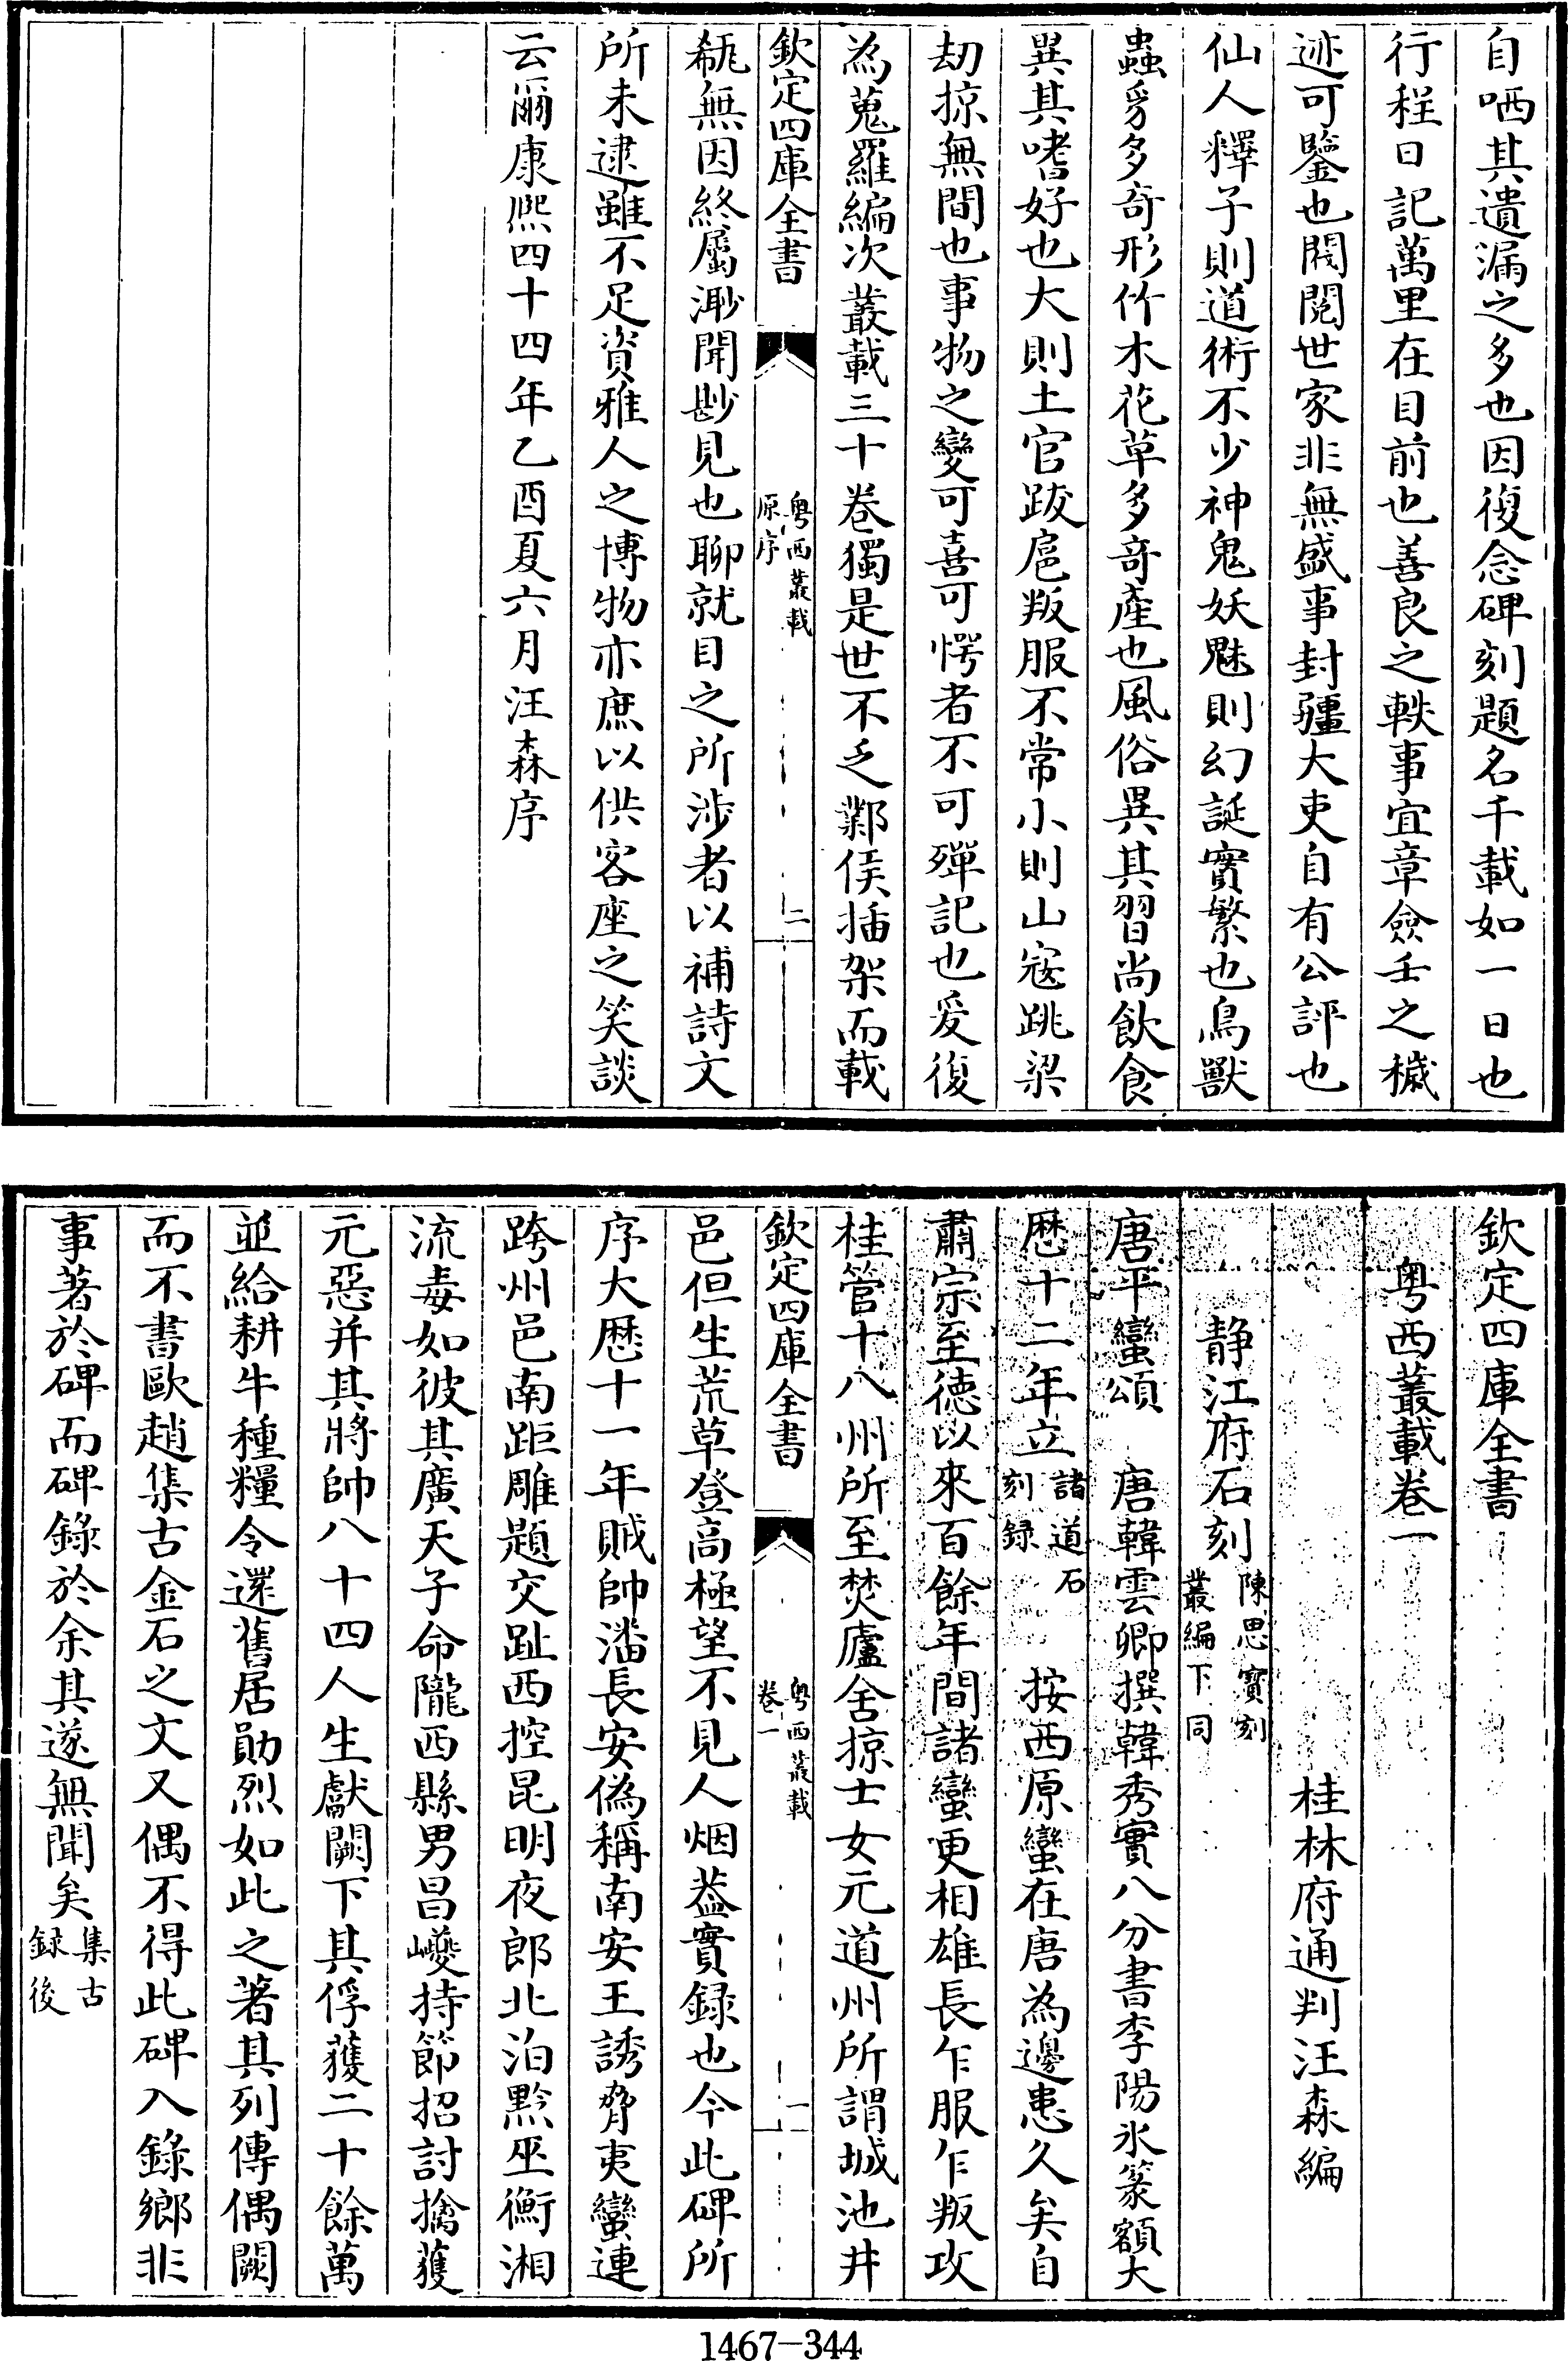 自哂其遺漏之多也因復念碑刻題名千載如一日也
行程日記萬里在目前也善良之軼事宜章僉壬之穢
迹可鑒也閥閱世家非無盛事封疆大吏自有公評也
仙人釋子則道術不少神鬼妖魅則幻誕實繁也鳥獸
蟲豸多奇形竹木花草多奇產也風俗異其習尚飲食
異其嗜好也大則土官跋扈叛服不常小則山寇跳梁
劫掠無間也事物之變可喜可愕者不可殫記也爰復
為蒐羅編次叢載三十卷獨是世不乏鄴侯插架而載
欽定四庫全書
粤西叢載
原序
二
瓻無因終屬渺聞尠見也聊就目之所涉者以補詩文
所未逮雖不足資雅人之博物亦庶以供客座之笑談
云爾康熙四十四年乙酉夏六月汪森序
欽定四庫全書
粤西叢載卷一
桂林府通判汪森編
静江府石刻
陳思寳刻
叢編下同
唐平蠻頌　唐韓雲卿撰韓秀實八分書李陽氷篆額大
厯十二年立
諸道石
刻録
按西原蠻在唐為邊患久矣自
肅宗至徳以來百餘年間諸蠻更相雄長乍服乍叛攻
桂管十八州所至焚廬舍掠士女元道州所謂城池井
欽定四庫全書
粤西叢載
卷一
一
邑但生荒草登高極望不見人烟葢實録也今此碑所
序大厯十一年賊帥潘長安偽稱南安王誘脅夷蠻連
跨州邑南距雕題交趾西控昆明夜郎北泊黔巫衡湘
流毒如彼其廣天子命隴西縣男昌巙持節招討擒獲
元惡并其將帥八十四人生獻闕下其俘獲二十餘萬
並給耕牛種糧令還舊居勛烈如此之著其列傳偶闕
而不書歐趙集古金石之文又偶不得此碑入錄鄉非
事著於碑而碑錄於余其遂無聞矣
集古
録後